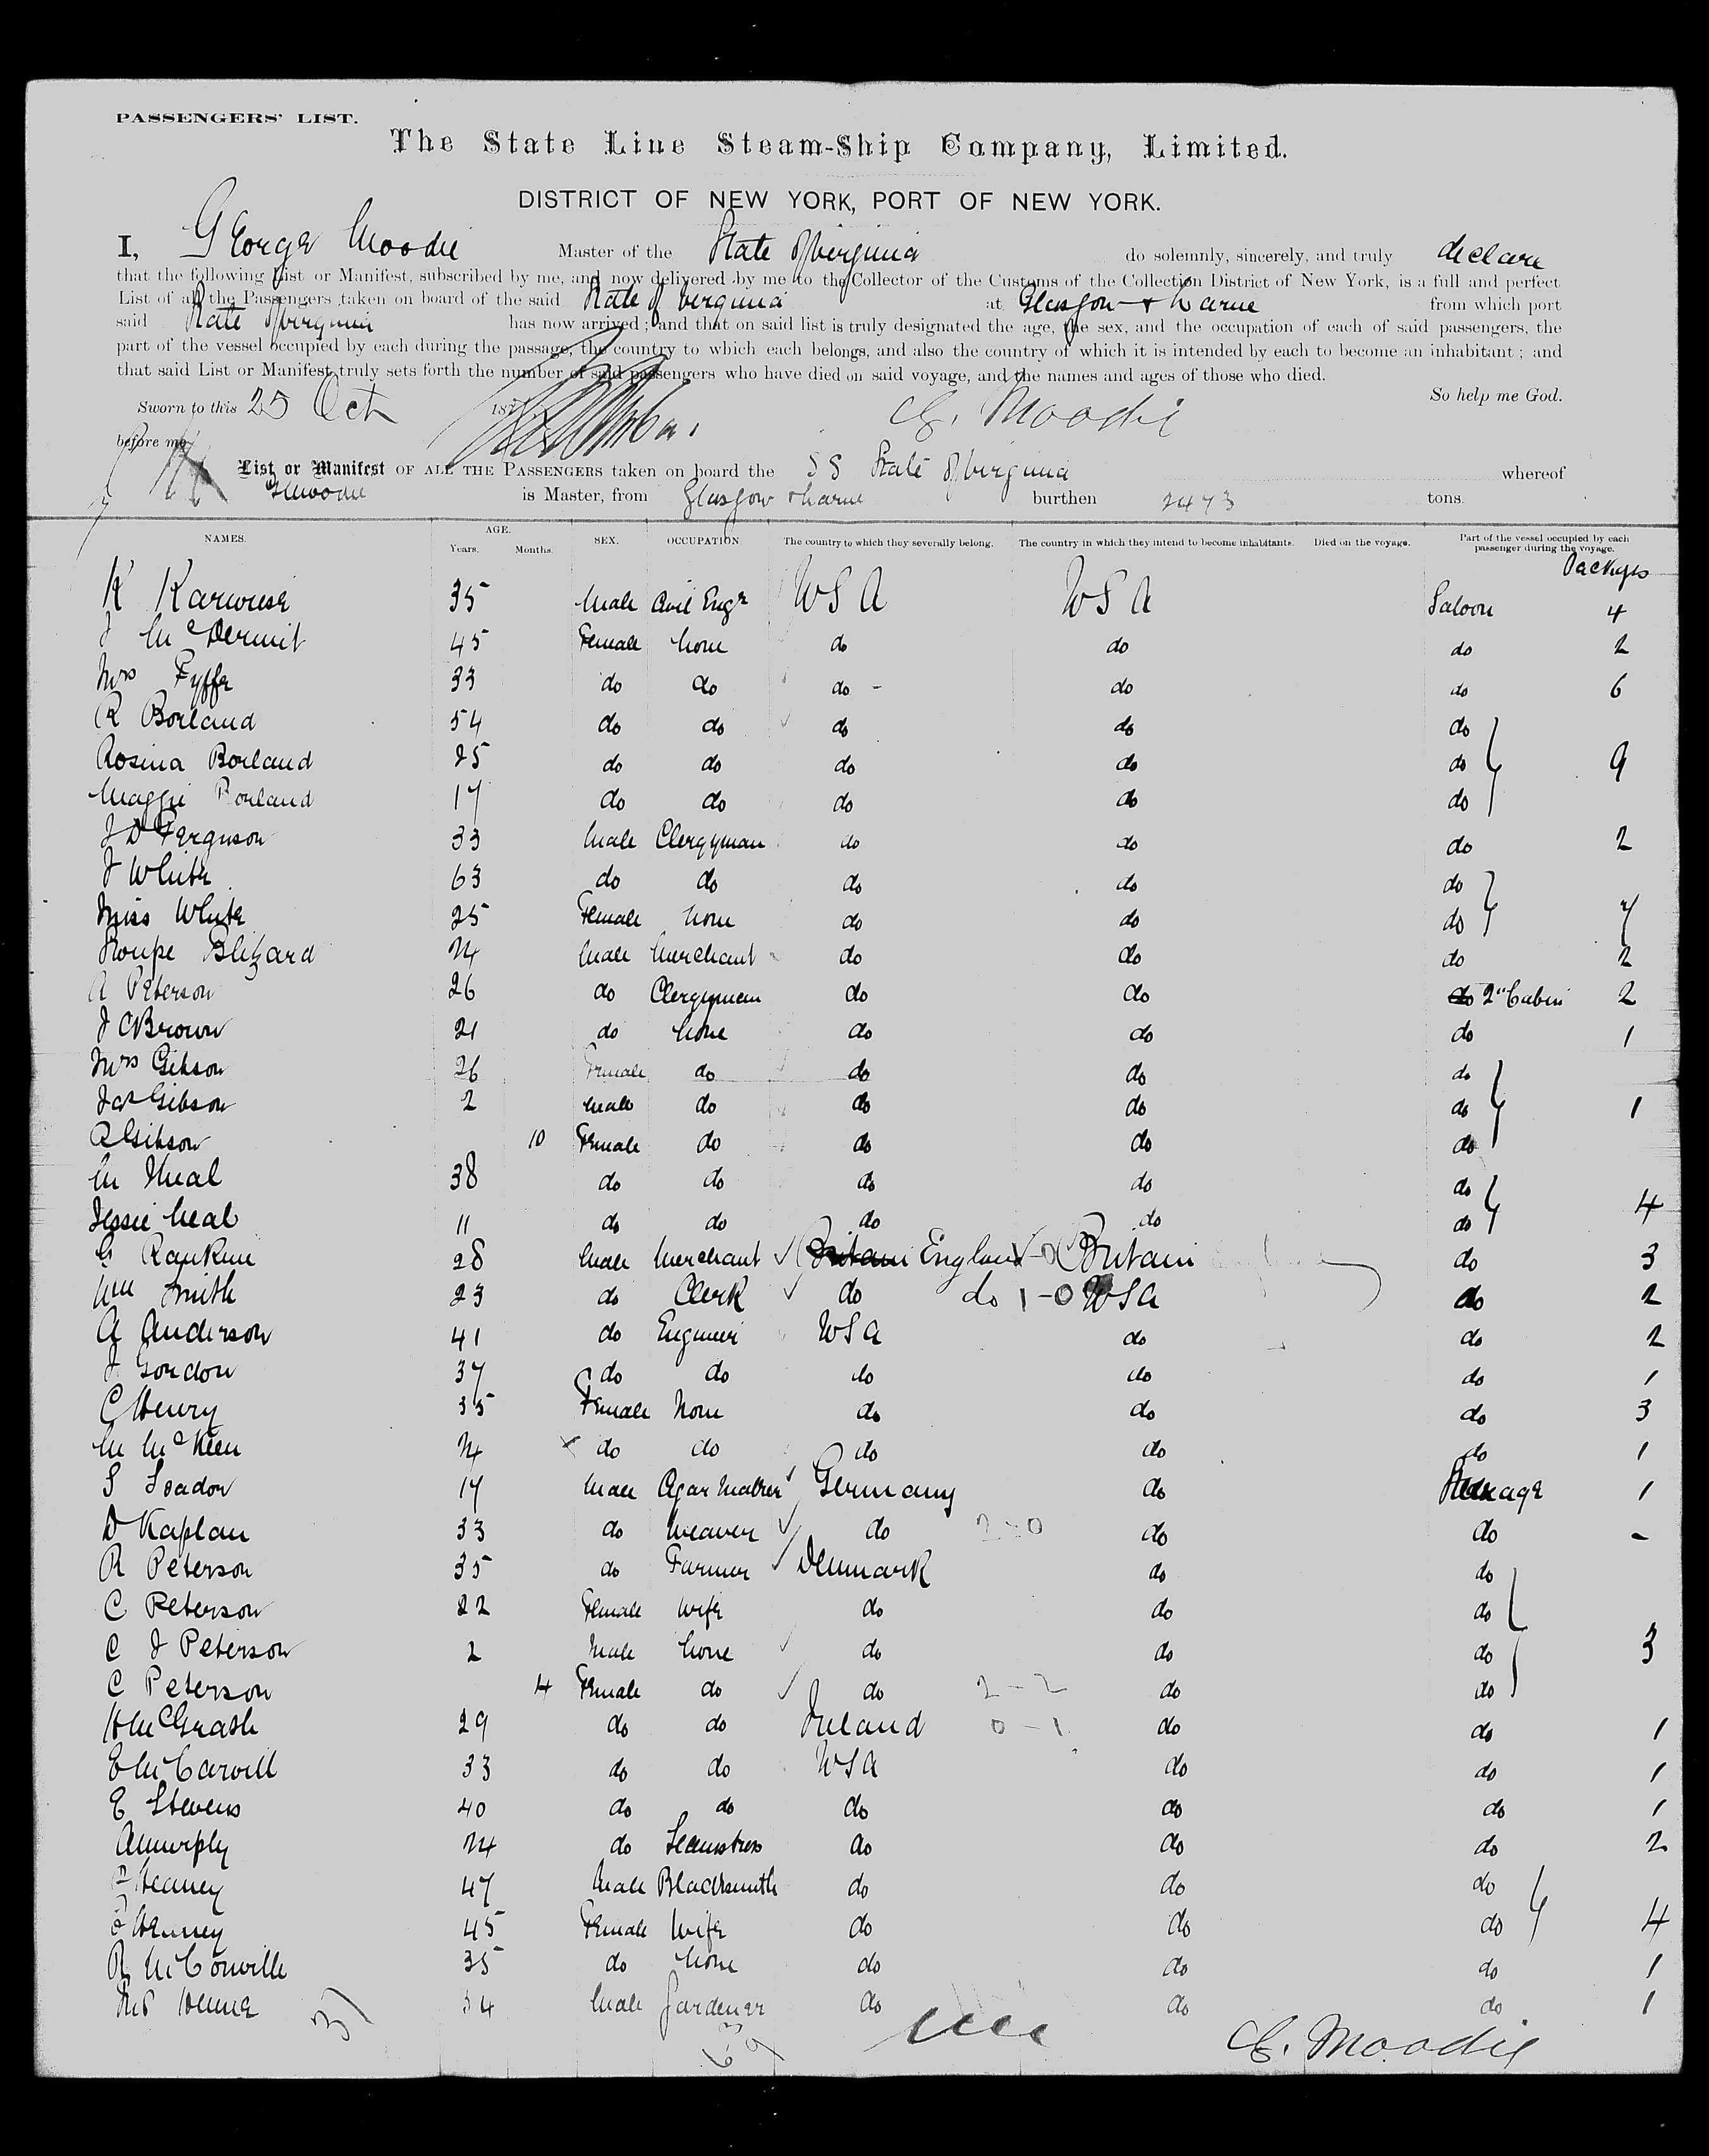 PASSENGERS' LIST.
The State Line Steam-Ship Company, Limited.
DISTRICT OF NEW YORK, PORT OF NEW YORK.
I, George Moodie Master of the State of Virginia do solemnly, sincerely, and truly declare
that the following List or Manifest, subscribed by me, and now delivered by me to the Collector of the Customs of the Collection District of New York, is a full and perfect
List of all the Passengers taken on board of the said State of Virginia at Glasgow + Larne from which port
said State of Virginia has now arrived; and that on said list is truly designated the age, the sex, and the occupation of each of said passengers, the
part of the vessel occupied by each during the passage, the country to which each belongs, and also the country of which it is intended by each to become an inhabitant; and
that said List or Manifest truly sets forth the number of said passengers who have died on said voyage, and the names and ages of those who died.
So help me God.
Sworn to this 25 Oct 187
G. Moodie
before me
List or Manifest OF ALL THE PASSENGERS taken on board the SS State of Virginia whereof
G Moodie is Master, from Glasgow + Larne burthen 2473 tons.
NAMES. AGE. Years. Months. SEX. OCCUPATION The country to which they severally belong. The country in which they intend to become inhabitants. Died on the voyage. Part of the vessel occupied by each passenger during the voyage.
Packages
K Karwiese 35 Male Civil Engr USA USA Saloon 4
J McDermit 45 Female None do do do 2
Mrs Fyffe 33 do do do - do do 6
R Borland 54 do do do do do
Rosina Borland 25 do do do do do 9
Maggie Borland 17 do do do do do
J D Ferguson 33 Male Clergyman do do do 2
J White 63 do do do do do
Miss White 25 Female None do do do 7
Roupe Blizard 24 Male Merchant do do do 2
A Peterson 26 do Clergyman do do do 2" Cabin 2
J C Brown 21 do None do do do 1
Mrs Gibson 26 Female do do do do
Jas Gibson 2 Male do do do do 1
R Gibson 10 Female do do do do
M Neal 38 do do do do do
Jessie Neal 11 do do do do do 4
G Rankine 28 Male Merchant Britain England - 0 Britain do 3
Wm Smith 23 do Clerk do do 1 - 0 USA do 2
A Anderson 41 do Engineer USA do do 2
J Gordon 37 do do do do do 1
C Henry 35 Female None do do do 3
M McKeen 24 do do do do do 1
S Loadon 17 Male Cigar Maker Germany do Steerage 1
D Kaplan 33 do Weaver do 2 - 0 do do -
R Peterson 35 do Farmer Denmark do do
C Peterson 22 Female Wife do do do
C J Peterson 2 Male None do do do 3
C Peterson 4 Female do do 2 - 2 do do
H McGrath 29 do do Ireland 0 - 1 do do 1
E McCarvill 33 do do USA do do 1
E Stevens 40 do do do do do 1
A Murphy 24 do Seamstress do do do 2
Heaney 47 Male Blacksmith do do do
Heaney 45 Female Wife do do do 4
R McConville 35 do None do do do 1
Hume 54 Male Gardener do do do 1
37
G. Moodie